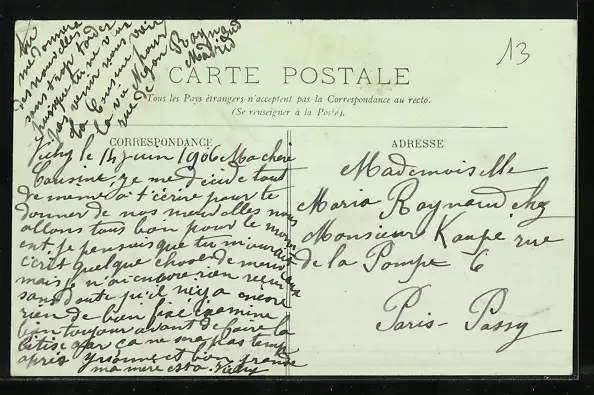 13
CARTE POSTALE
Tous les Pays étrangers n'acceptent pas la Correspondance au recto.
(Se renseigner à la Poste).
CORRESPONDANCE
ADRESSE
Vichy le 14 juin 1906 Ma chère
Cousine je me décide tout
de même à t'écrire pour te
donner de nos nouvelles nous
allons tous bon pour le mom
ent je pensais que tu m'aurais
écrit quelque chose de nouveau
mais je n'ai encore rien reçu
sans doute qu'il n'y a encore
rien de bien fixé examine
bon toujour avant de faire la
bêtise car ça ne sera pas temp
après Yvonne et bon grande
ma mère est a Vichy
me donnera
des nouvelles
sans trop tarder
puisque tu ne veux
pas venir nous voir
ta Cousine pour
la vie
Raynaud
rue de
Madrid
Mademoiselle
Maria Raynaud chez
Monsieur Kaupé rue
de la Pompe 6
Paris-Passy